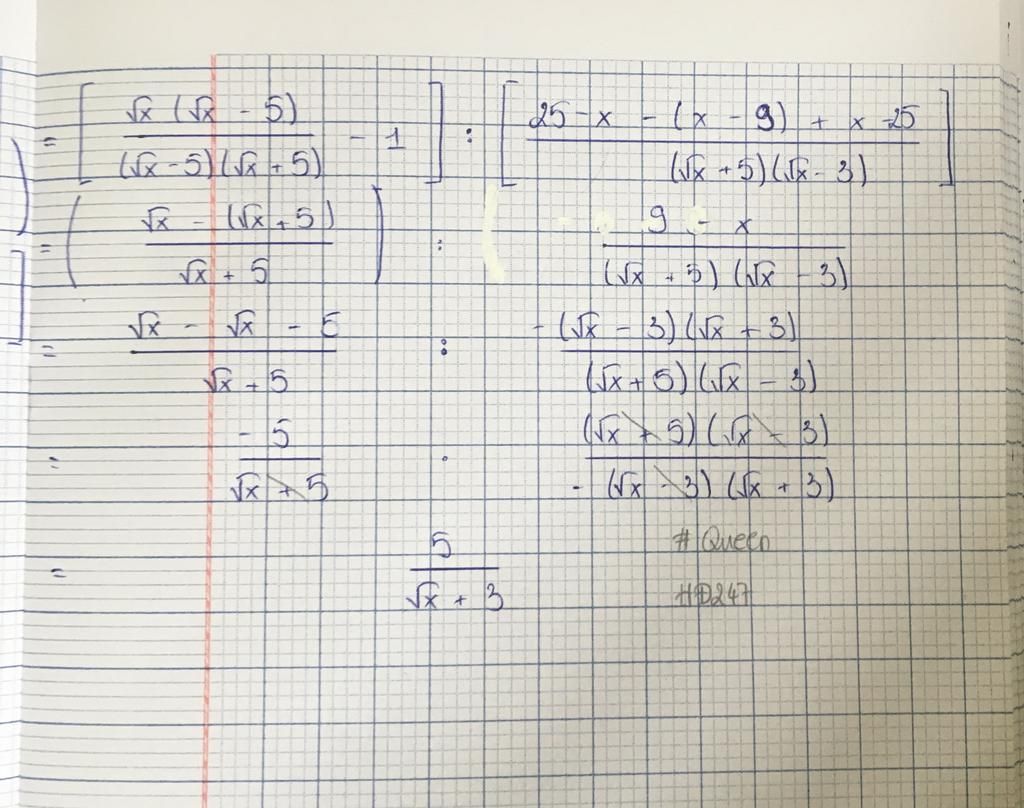 = [ √x (√x - 5) / (√x - 5)(√x + 5) - 1 ] : [ 25 - x - (x - 9) + x - 25 / (√x + 5)(√x - 3) ]
= ( √x - (√x + 5) / √x + 5 ) : 9 - x / (√x + 5) (√x - 3)
= √x - √x - 5 / √x + 5 : - (√x - 3) (√x + 3) / (√x + 5) (√x - 3)
= - 5 / √x + 5 . (√x + 5) (√x - 3) / - (√x - 3) (√x + 3)
= 5 / √x + 3
# Queen
HD247